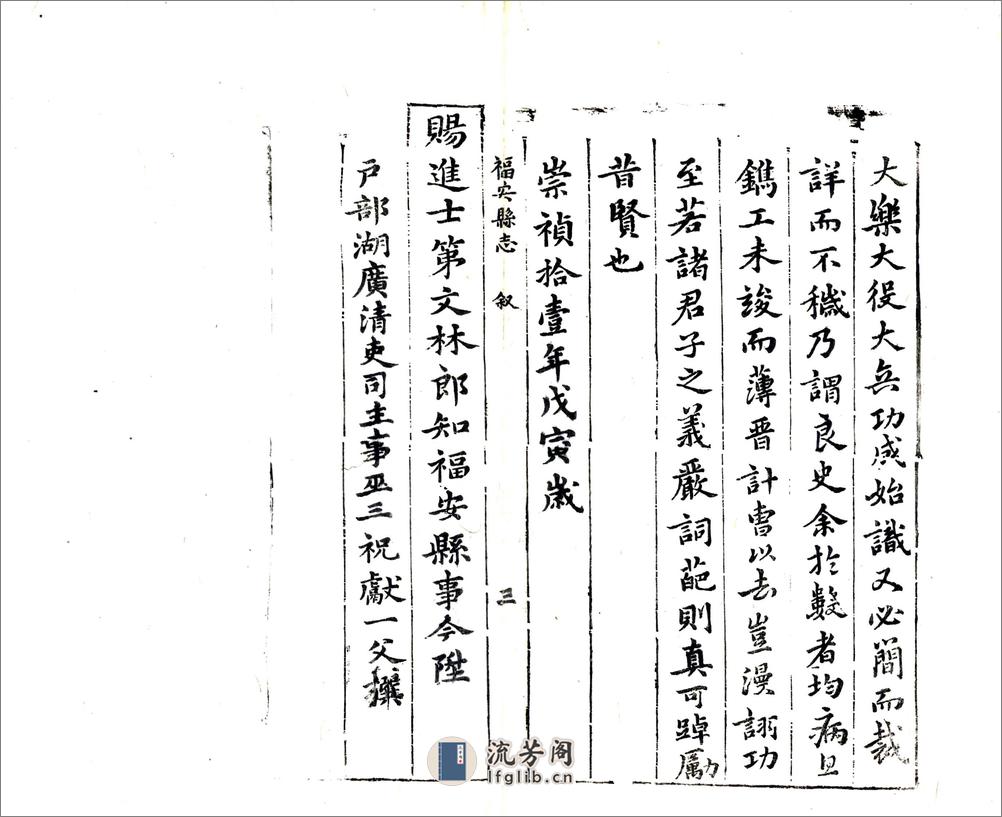 大樂大役大兵功成始識又必簡而裁
詳而不穢乃謂良史余於數者均病且
鐫工未竣而薄晋計曹以去豈漫詡功
至若諸君子之義嚴詞葩則真可踔厲
昔賢也
崇禎拾壹年戊寅歲
福安縣志 叙 三
賜進士第文林郎知福安縣事今陞
户部湖廣清吏司主事巫三祝獻一父撰
流芳阁
lfglib.cn